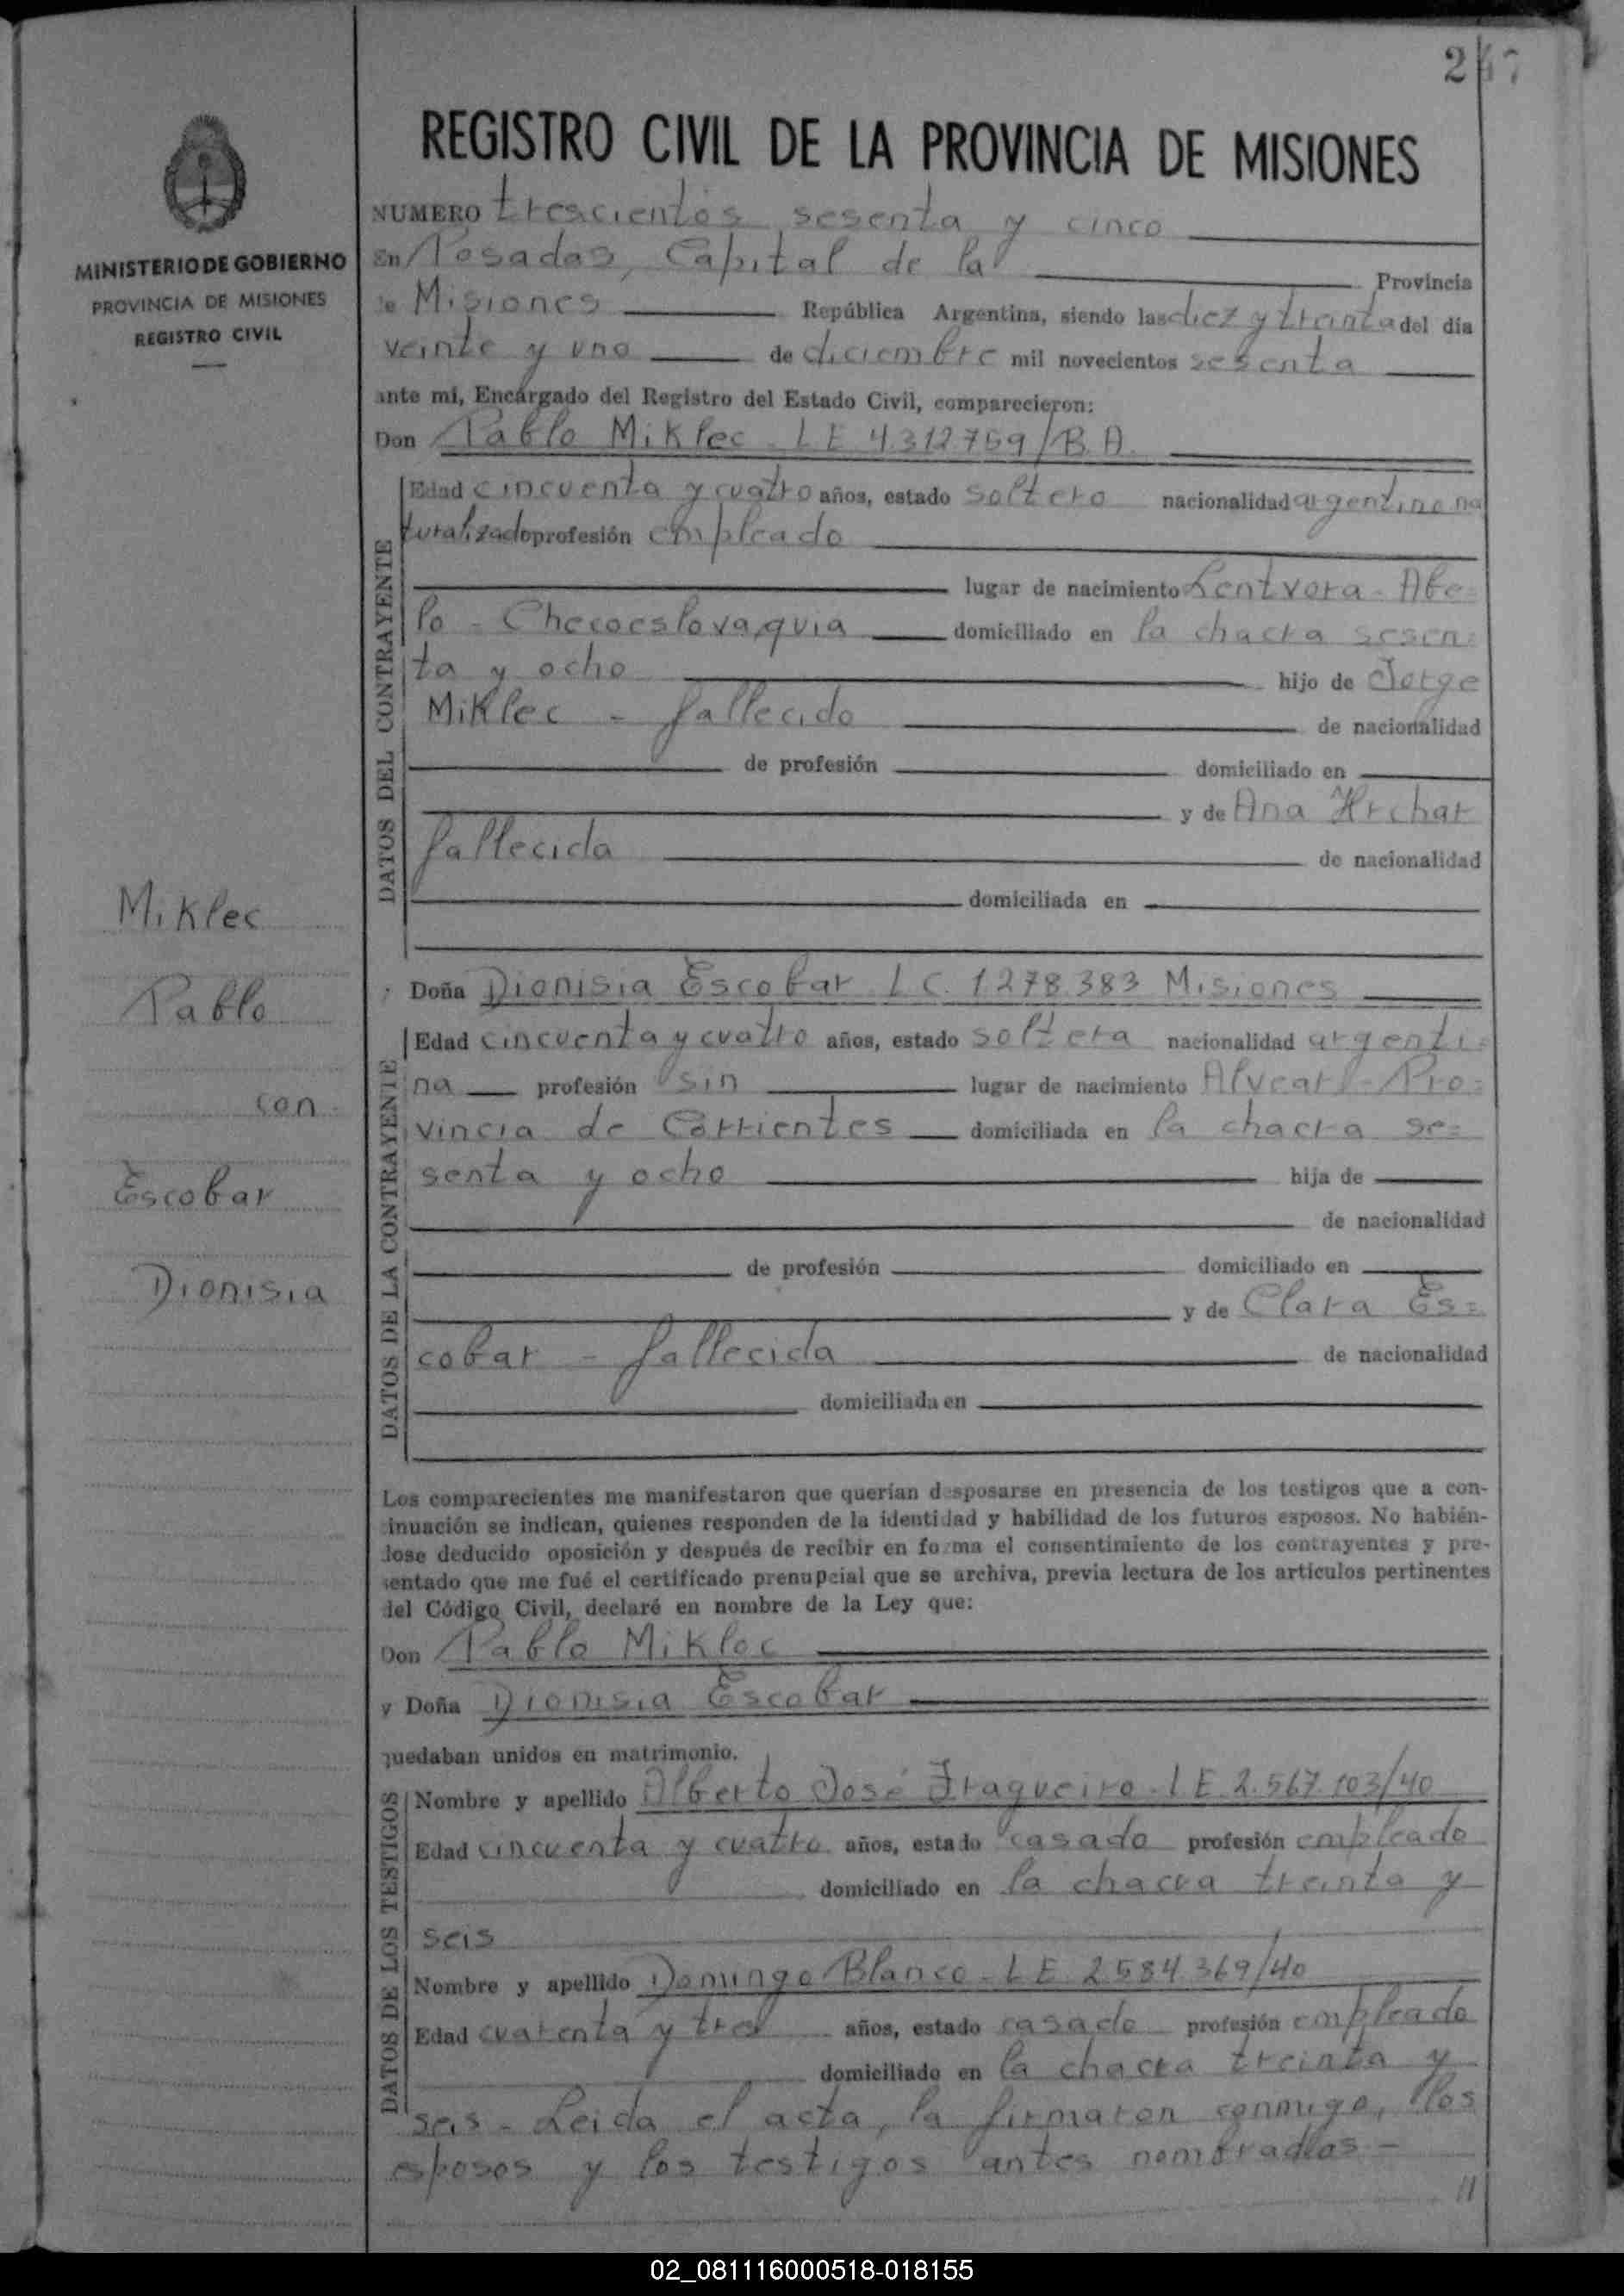 247
REGISTRO CIVIL DE LA PROVINCIA DE MISIONES
MINISTERIO DE GOBIERNO
PROVINCIA DE MISIONES
REGISTRO CIVIL
NUMERO trescientos sesenta y cinco
En Posadas, Capital de la Provincia
de Misiones República Argentina, siendo las diez y treinta del día
veinte y uno de diciembre mil novecientos sesenta
ante mi, Encargado del Registro del Estado Civil, comparecieron:
Don Pablo Miklec - LE 4.312.759/B.A.
DATOS DEL CONTRAYENTE
Edad cincuenta y cuatro años, estado soltero nacionalidad argentino na
turalizado profesión empleado
lugar de nacimiento Lentvora - Abe=
lo - Checoeslovaquia domiciliado en la chacra sesen=
ta y ocho hijo de Jorge
Miklec - fallecido de nacionalidad
de profesión domiciliado en
y de Ana Hrchar
fallecida de nacionalidad
domiciliada en
Miklec
Pablo
con
Escobar
Dionisia
Doña Dionisia Escobar L C. 1.278.383 Misiones
DATOS DE LA CONTRAYENTE
Edad cincuenta y cuatro años, estado soltera nacionalidad argenti=
na profesión sin lugar de nacimiento Alvear - Pro=
vincia de Corrientes domiciliada en la chacra se=
senta y ocho hija de
de nacionalidad
de profesión domiciliado en
y de Clara Es=
cobar - fallecida de nacionalidad
domiciliada en
Los comparecientes me manifestaron que querían desposarse en presencia de los testigos que a con-
tinuación se indican, quienes responden de la identidad y habilidad de los futuros esposos. No habién-
dose deducido oposición y después de recibir en forma el consentimiento de los contrayentes y pre-
sentado que me fué el certificado prenupcial que se archiva, previa lectura de los artículos pertinentes
del Código Civil, declaré en nombre de la Ley que:
Don Pablo Miklec
y Doña Dionisia Escobar
quedaban unidos en matrimonio.
DATOS DE LOS TESTIGOS
Nombre y apellido Alberto José Fragueiro - L E. 2.567.103/40
Edad cincuenta y cuatro años, estado casado profesión empleado
domiciliado en la chacra treinta y
seis
Nombre y apellido Domingo Blanco - L E. 2.584.369/40
Edad cuarenta y tres años, estado casado profesión empleado
domiciliado en la chacra treinta y
seis - Leida el acta, la firmaron conmigo, los
esposos y los testigos antes nombrados -
//
02_081116000518-018155